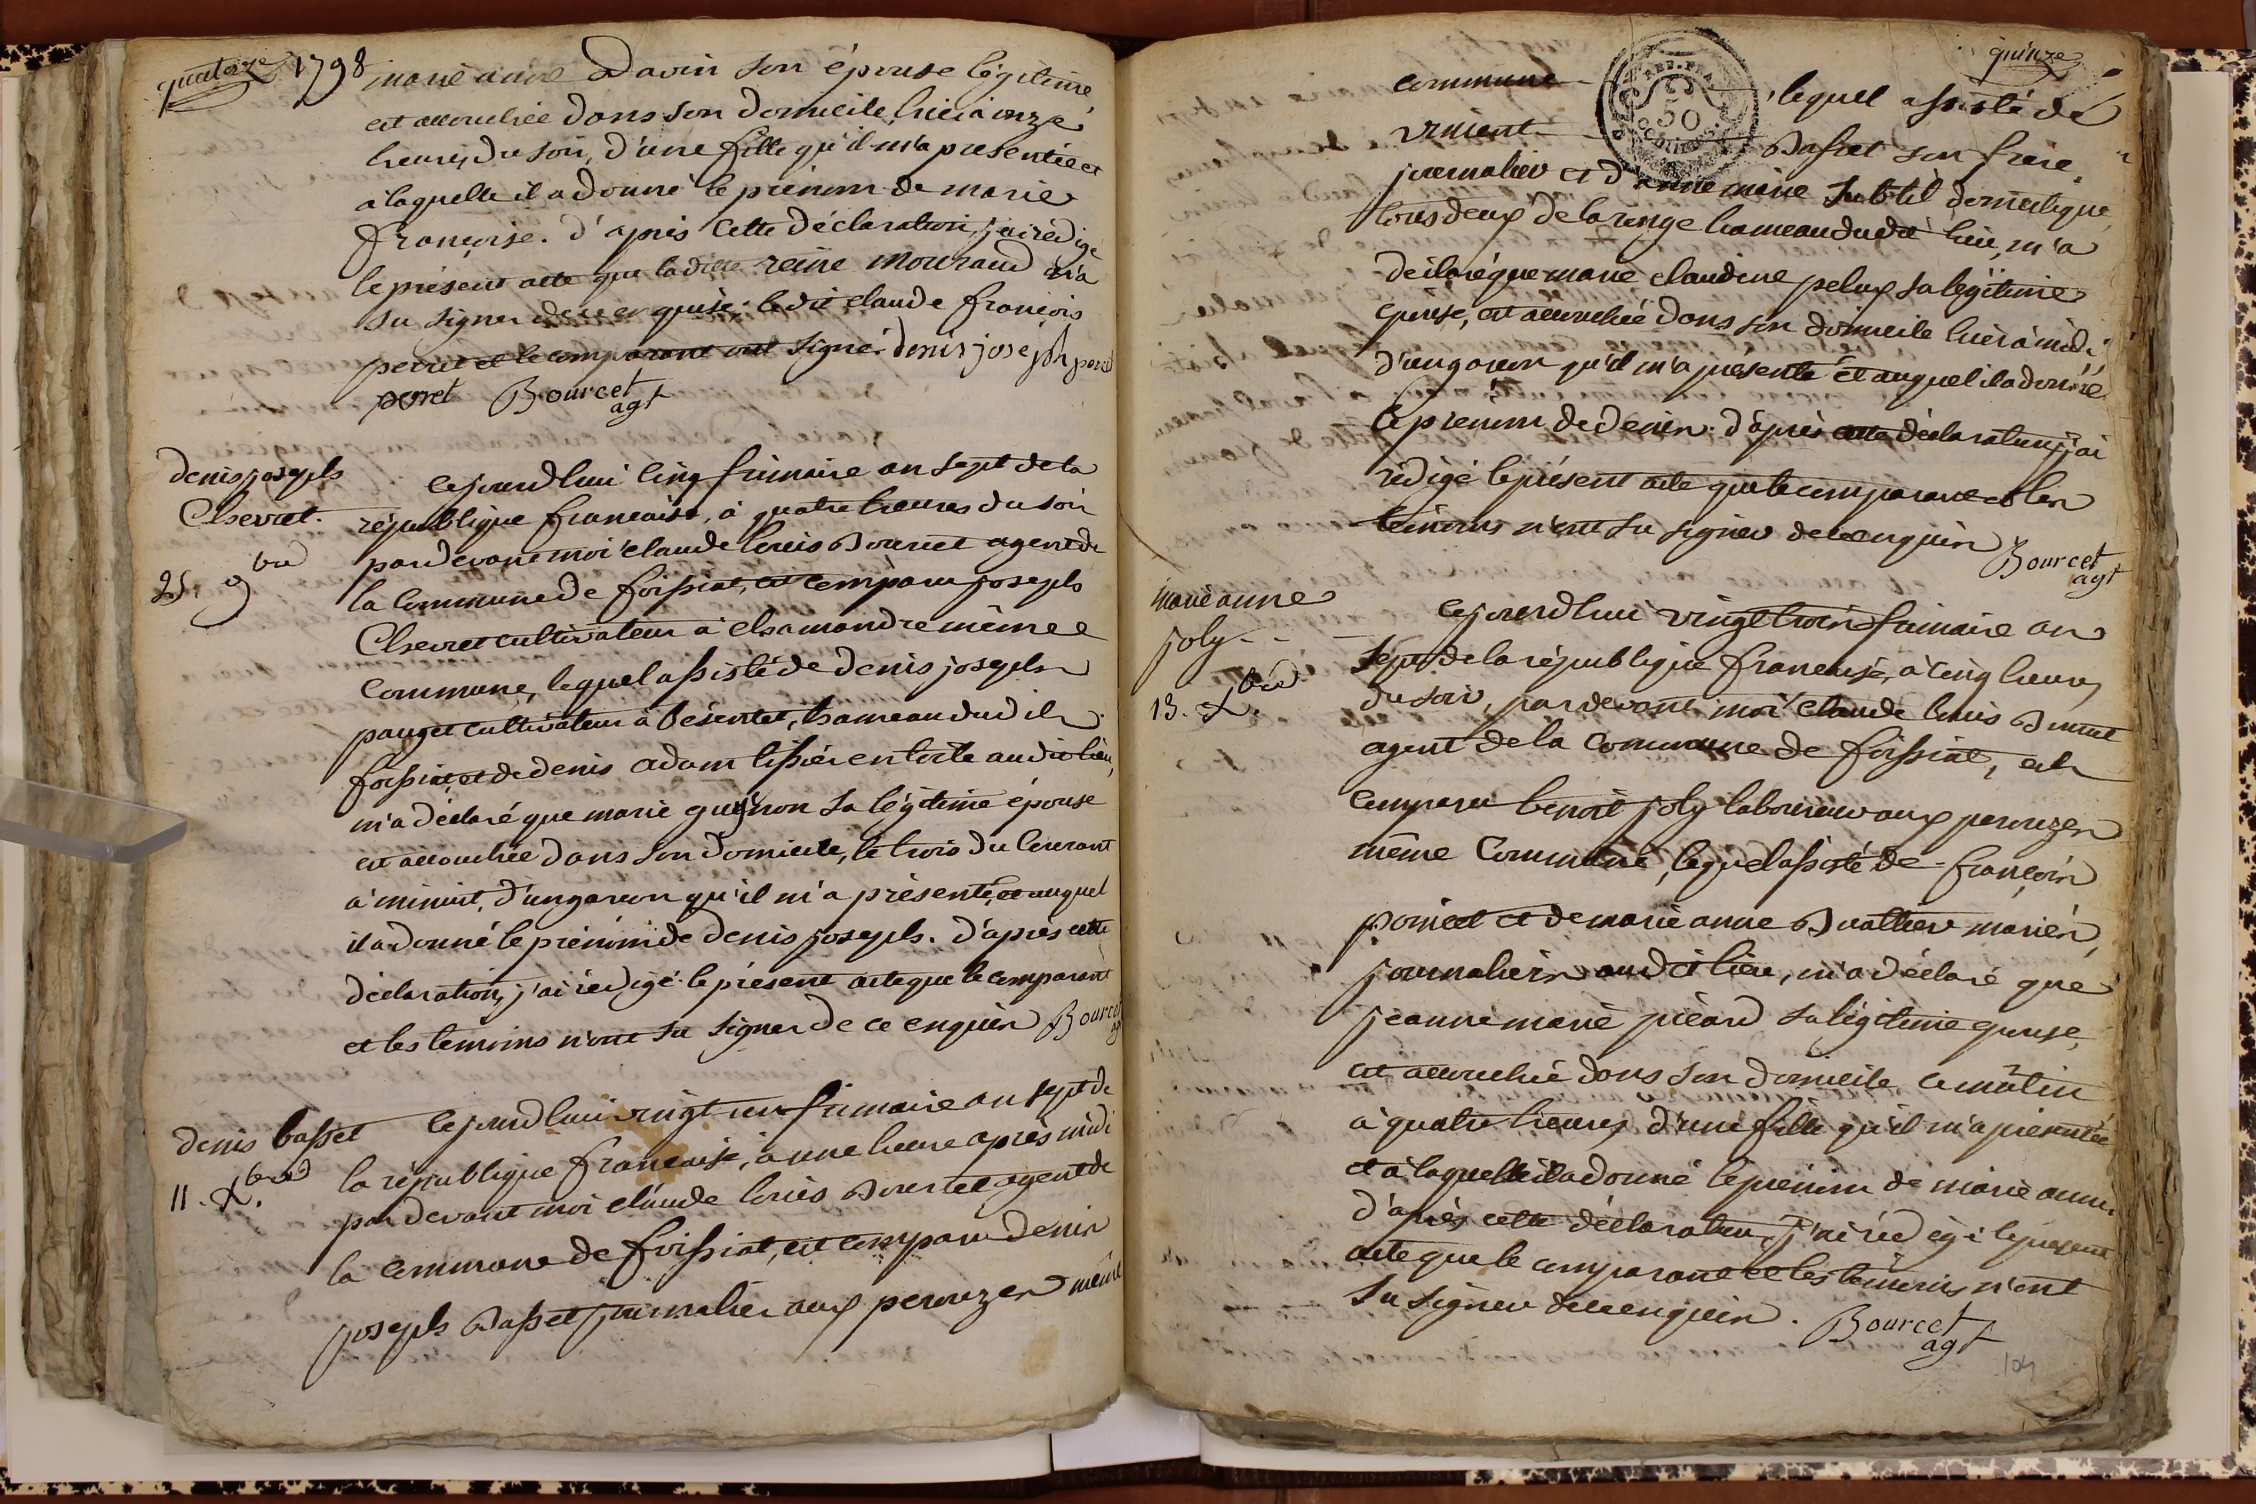 quatorze 1798
marie anne Davin son épouse légitime,
est accouchée dans son domicile, hier à onze
heures du soir, d'une fille qu'il m'a présentée et
à laquelle il a donné le prénom de marie
françoise. d'après cette déclaration, j'ai rédigé
le présent acte que ladite reine mouraud n'a
su signer de ce enquise; ledit claude françois
perret et le comparant ont signé. denis joseph peret
peret Bourcet
agt
denis joseph
Chevret.
25 9bre
cejourdhui cinq frimaire an sept de la
république française, à quatre heures du soir
pardevant moi claude louis Bourcet agent de
la commune de foissiat, est comparu joseph
Chevret cultivateur à chamandre même
commune, lequel assisté de denis joseph
pauget cultivateur à besentet, hameau dudit
foissiat, et de denis adam tissier en toile audit lieu,
m'a déclaré que marie guynon sa légitime épouse
est accouchée dans son domicile, le trois du courant
à minuit, d'un garçon qu'il m'a présenté, et auquel
il a donné le prénom de denis joseph. d'après cette
déclaration, j'ai rédigé le présent acte que le comparant
et les temoins n'ont su signer de ce enquis Bourcet
ag
denis basset
11. Xbre
cejourdhui vingt un frimaire an sept de
la république française, à une heure après midi
pardevant moi claude louis Bourcet agent de
la commune de foissiat, est comparu denis
joseph Basset journalier aux perouzes même
quinze
commune lequel assisté de
REP. FRA
50
CENTIMES
vincent Basset son frère,
journalier et d'anne marie subtil domestique
tous deux de la range hameau dudit lieu, m'a
déclaré que marie claudine pelux sa légitime
épouse, est accouchée dans son domicile hier à midi
d'un garçon qu'il m'a présenté et auquel il a donné
le prenom de denis. d'après cette déclaration, j'ai
rédigé le présent acte que le comparant et les
temoins n'ont su signer de ce enquis Bourcet
agt
marie anne
joly
13. Xbre
cejourdhui vingt trois frimaire an
sept de la république française, à cinq heures
du soir, pardevant moi claude louis Bourcet
agent de la commune de foissiat, est
comparu benoit joly laboureur aux perouzes
même commune, lequel assisté de françois
poncet et de marie anne Buathier mariés,
journaliers audit lieu, m'a déclaré que
jeanne marie picard sa légitime epouse,
est accouchée dans son domicile ce matin
à quatre heures, d'une fille qu'il m'a présentée
et à laquelle il a donné le prénom de marie anne.
d'après cette déclaration, j'ai rédigé le présent
acte que le comparant et les temoins n'ont
su signer de ce enquis. Bourcet
agt
104